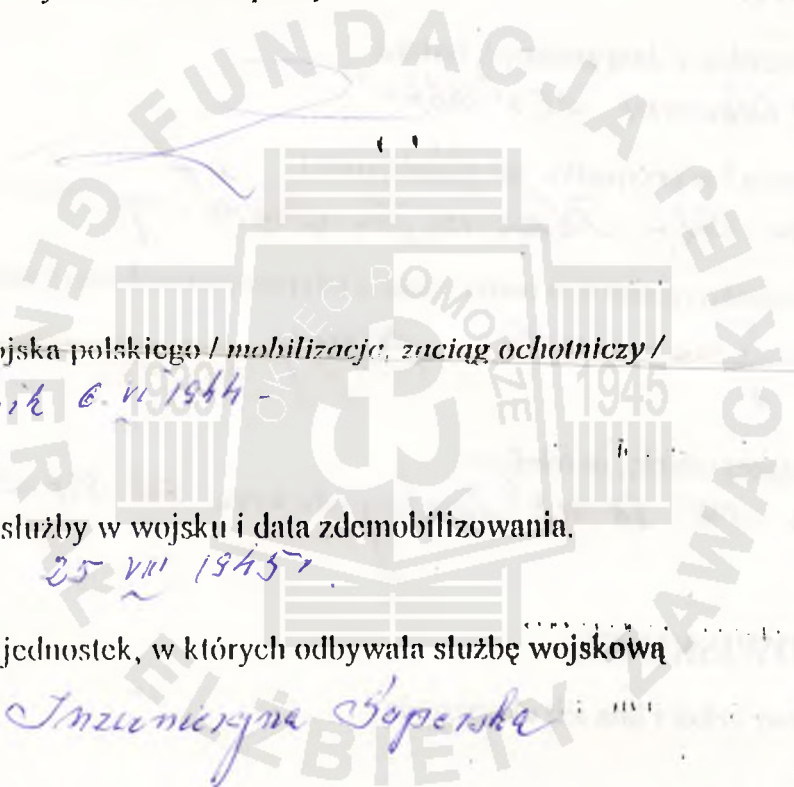 FUNDACJA GENERAŁ ELŻBIETY ZAWACKIEJ
OKRĘG POMORZE
1939 1945
AK
ojska polskiego / mobilizacja, zaciąg ochotniczy /
6 VI 1944 -
służby w wojsku i data zdemobilizowania.
25 VIII 1945 r
jednostek, w których odbywała służbę wojskową
Inżunieryjna Saperska